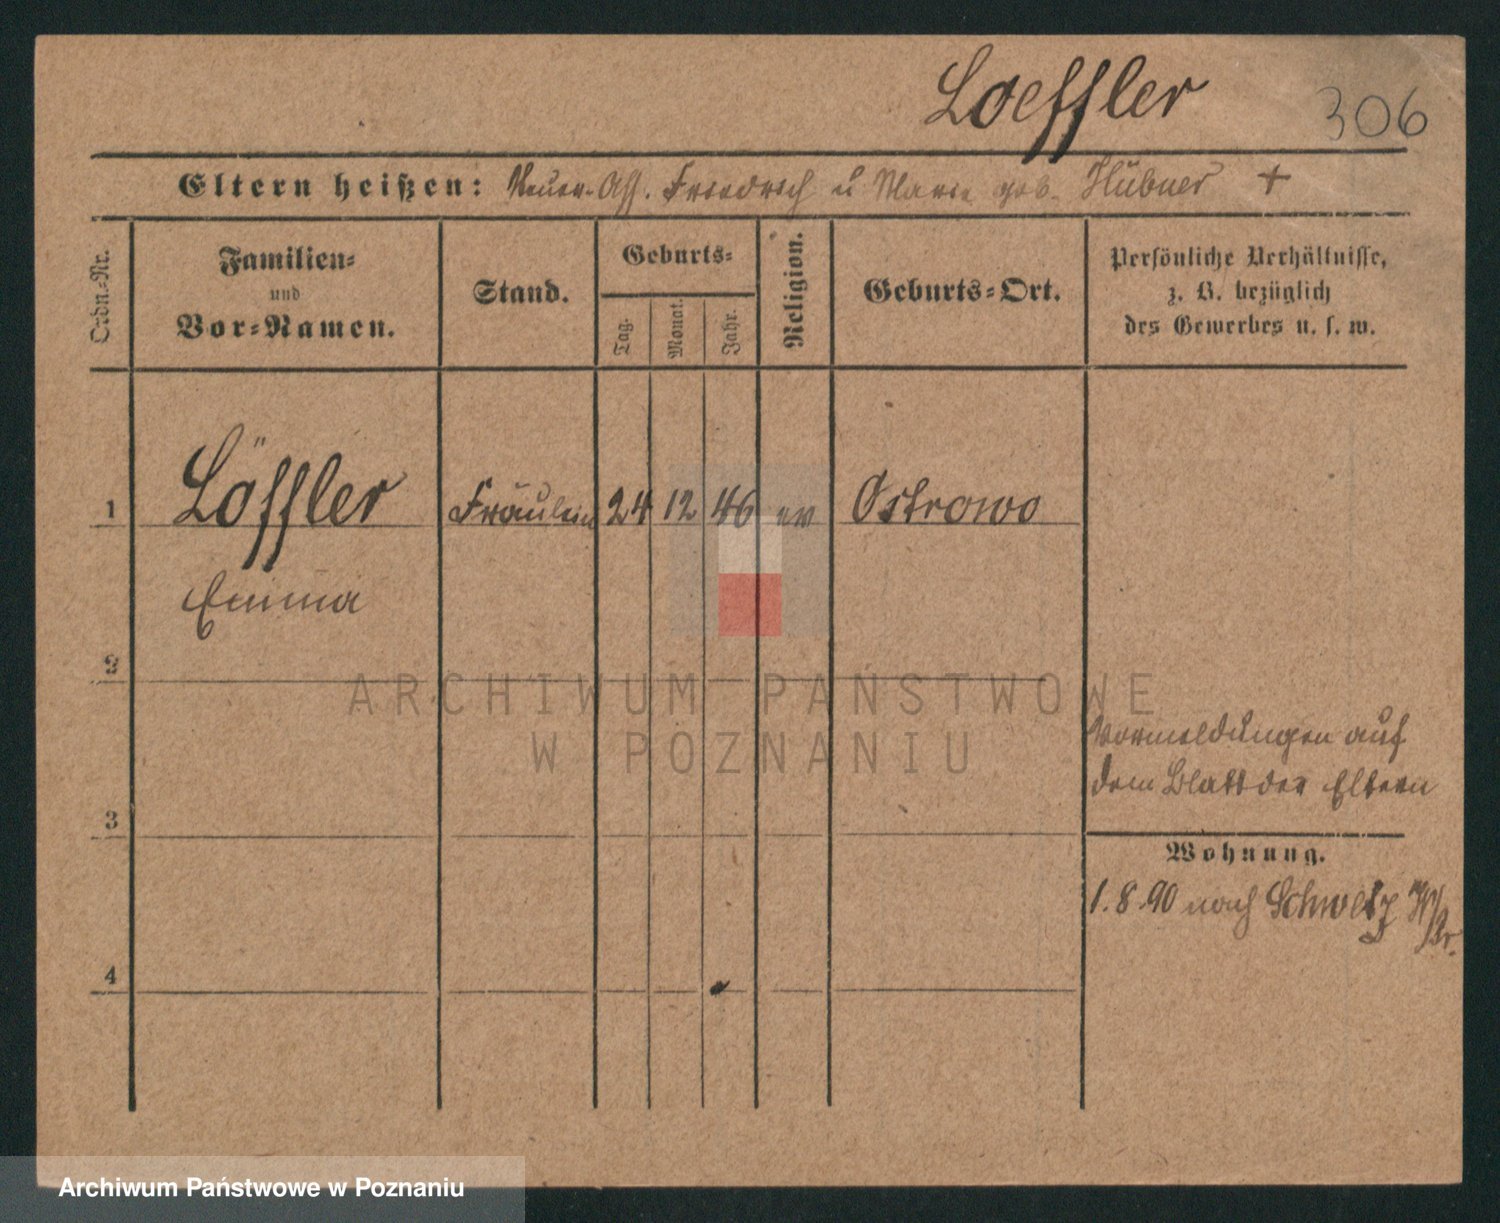 Loeffler 306
Eltern heißen: Steuer-Ass. Friedrich u Marie geb. Hübner +
Ordn.-Nr.
Familien-
und
Vor-Namen.
Stand.
Geburts-
Tag.
Monat.
Jahr.
Religion.
Geburts-Ort.
Persönliche Verhältnisse,
z. B. bezüglich
des Gewerbes u. s. w.
1 Löffler Fräulein 24 12 46 ev Ostrowo
Emma
2
ARCHIWUM PAŃSTWOWE
W POZNANIU
Vormeldungen auf
dem Blatt der Eltern
3
Wohnung.
1.8.90 nach Schwetz W/
Pr.
4
Archiwum Państwowe w Poznaniu